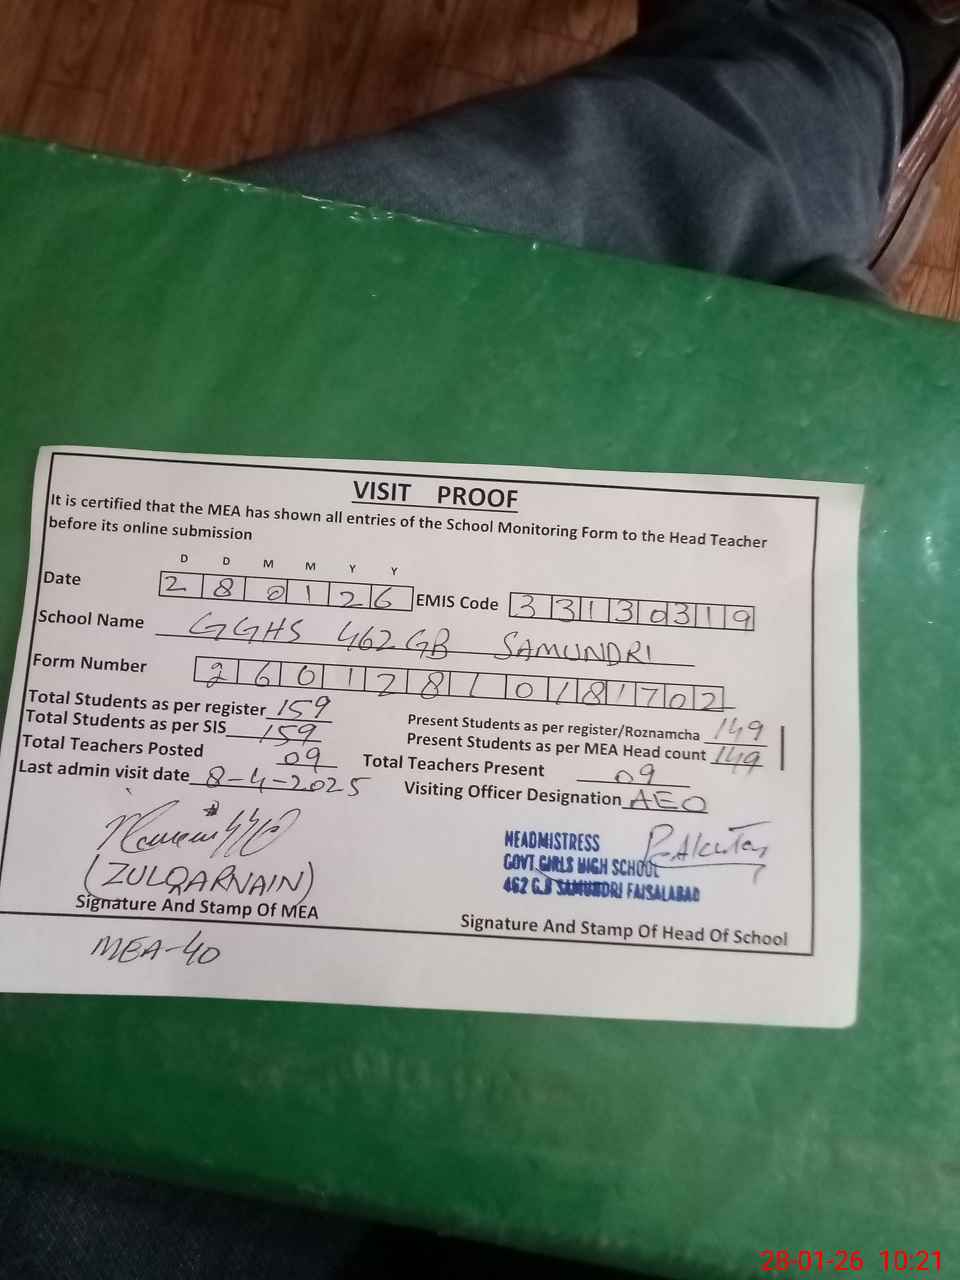 VISIT PROOF
It is certified that the MEA has shown all entries of the School Monitoring Form to the Head Teacher
before its online submission
D D M M Y Y
Date 2 8 0 1 2 6 EMIS Code 3 3 1 3 0 3 1 9
School Name GGHS 462 GB SAMUNDRI
Form Number 2 6 0 1 2 8 1 0 1 8 1 7 0 2
Total Students as per register 159 Present Students as per register/Roznamcha 149
Total Students as per SIS 159 Present Students as per MEA Head count 149
Total Teachers Posted 09 Total Teachers Present 09
Last admin visit date 8-4-2025 Visiting Officer Designation AEO
HEADMISTRESS
GOVT. GIRLS HIGH SCHOOL
462 G.B SAMUNDRI FAISALABAD
(ZULQARNAIN)
Signature And Stamp Of MEA Signature And Stamp Of Head Of School
MEA-40
28-01-26 10:21